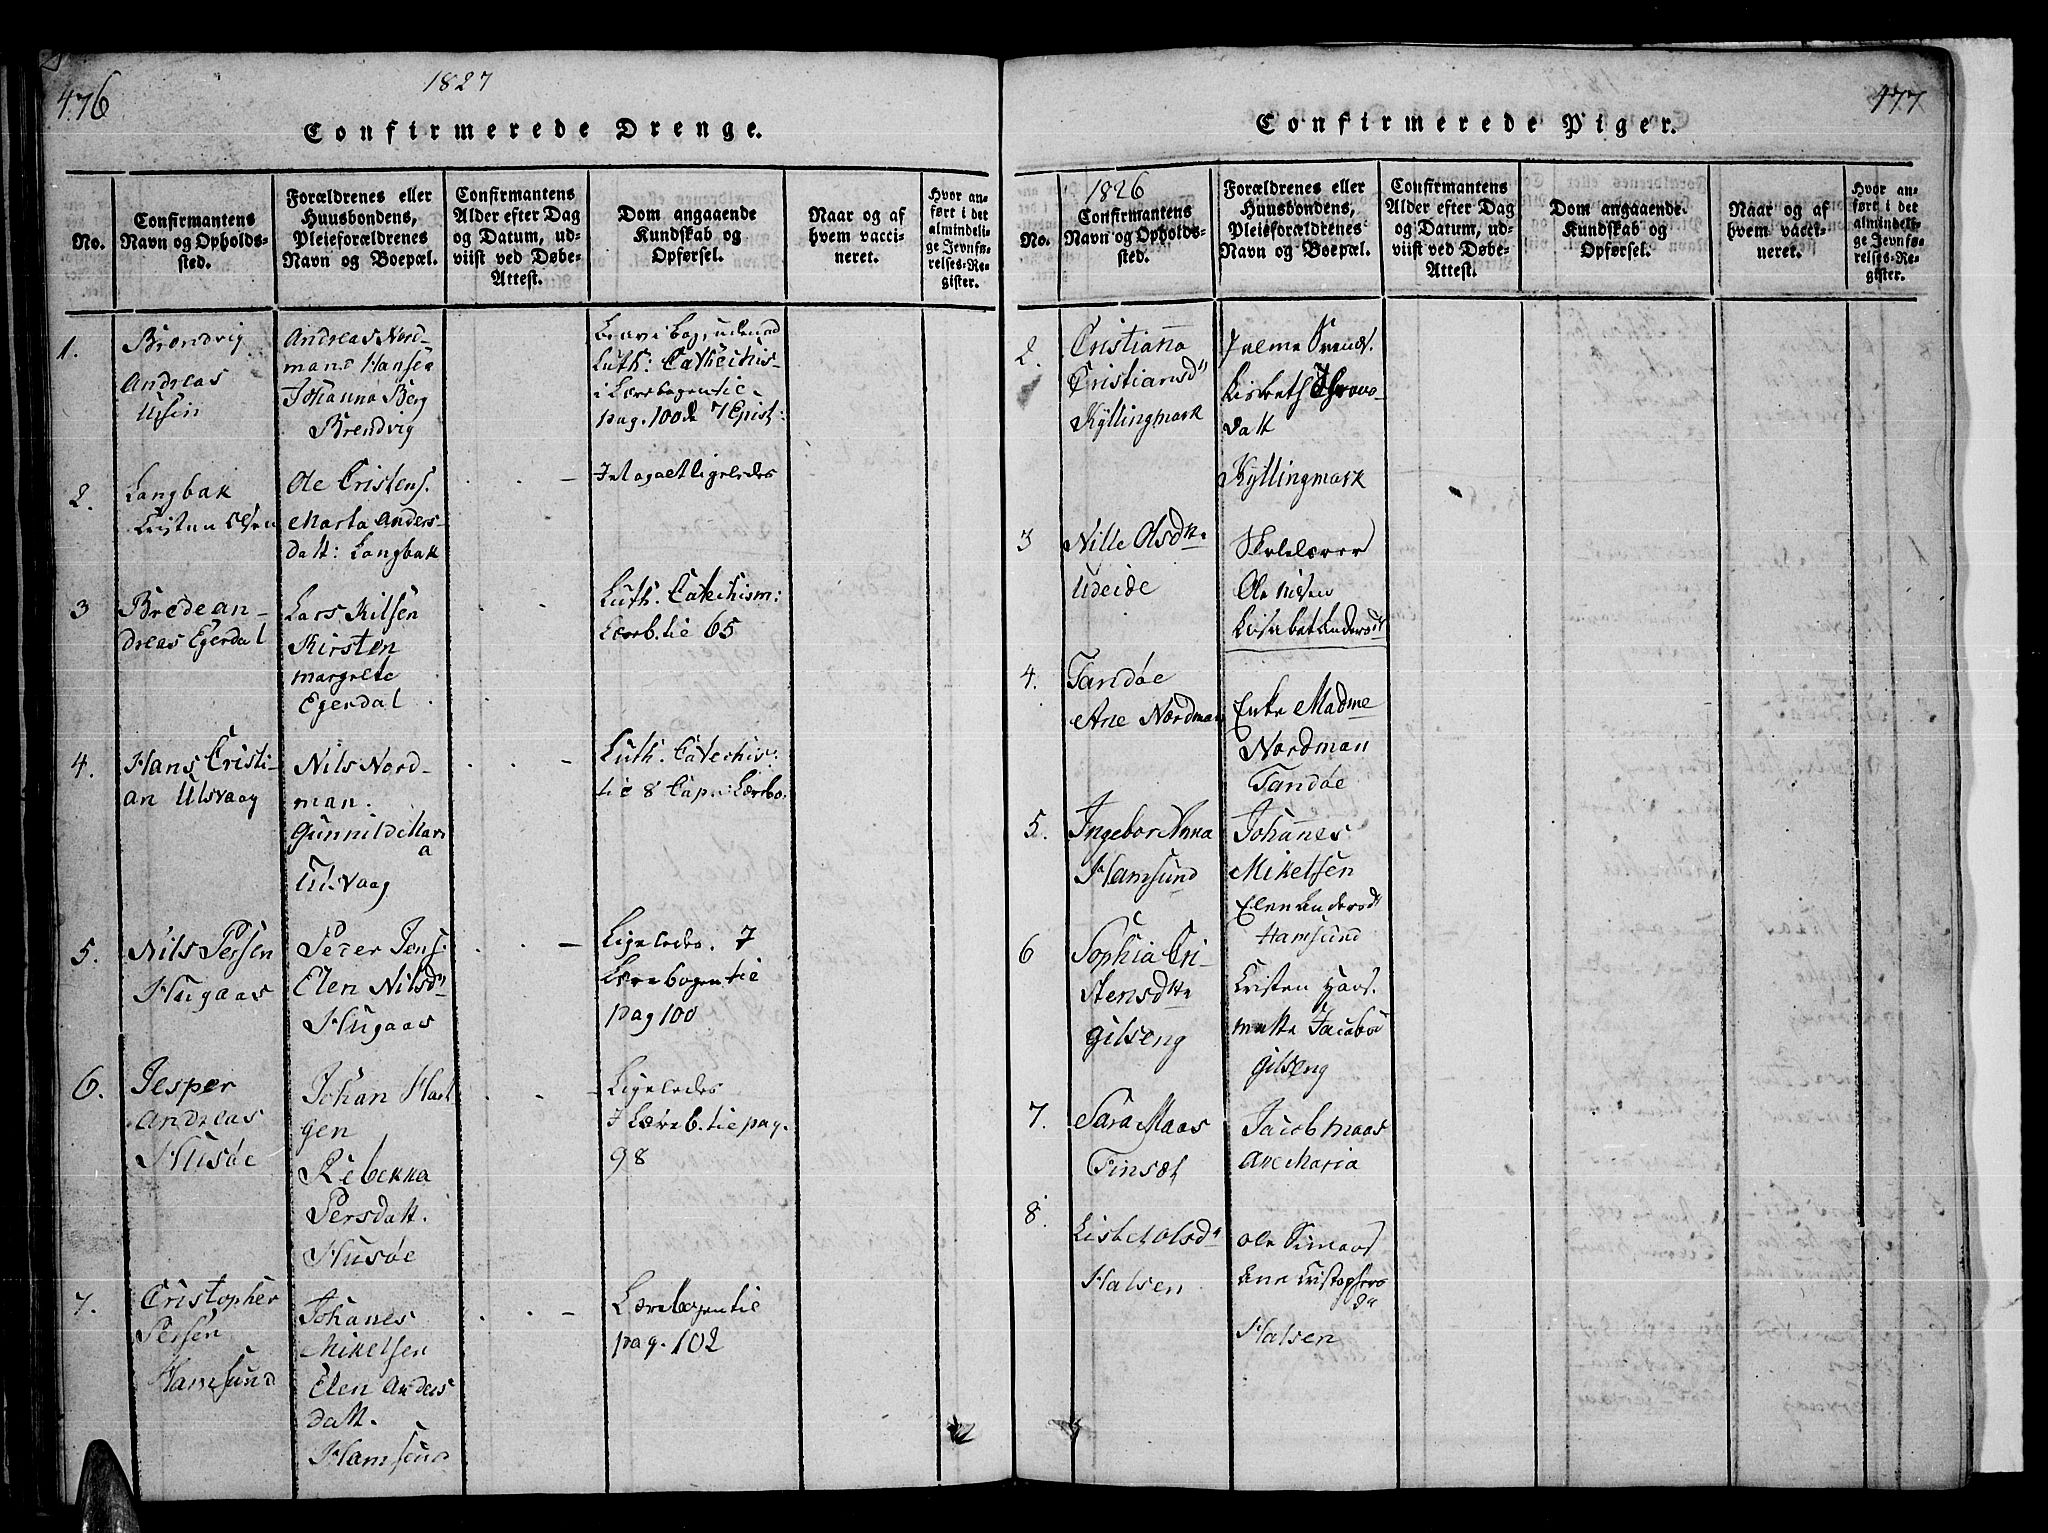 476
1827
Confirmerede Drenge.
No.
Confirmantens
Navn og Opholds-
sted.
Forældrenes eller
Huusbondens,
Pleieforældrenes
Navn og Boepæl.
Confirmantens
Alder efter Dag
og Datum, ud-
viist ved Døbe-
Attest.
Dom angaaende
Kundskab og
Opførsel.
Naar og af
hvem vacci-
neret.
Hvor an-
ført i det
almindeli-
ge Jevnfø-
relses-Re-
gister.
1.
Brendvig
Andreas
Andreas Nord-
mand Hansen
Johanna Berg
Brendvig
Luth: Cathechis-
i Lærebogen tie
pag. 100 & 7 Epist:
2.
Langbak
Cristen Olsen
Ole Cristens.
Marta Anders-
datt: Langbak
ligeledes
3
Bredean-
dreas Egerdal
Lars Nilsen
Kirsten
margrete
Egerdal
Luth. Catechism:
Lærb. tie 65
4.
Hans Cristi-
an Ulsvaag
Nils Nord-
man.
Gunnilde Mari
a
Ulsvaag
Luth. Catechis:
tie 8 Cap i Lærebo.
5.
Nils Persen
Hugaas
Peder Jens.
Elen Nilsd"
Hugaas
Ligeledes. 7
Lærebogen tie
pag 100
6.
Jesper
Andreas
Husöe
Johan Ha
gen
Rebekka
Persdatt.
Husöe
Ligeledes
I Læreb. tie pag.
98
7.
Cristopher
Persen
Hamsund
Johanes
Mikelsen
Elen Anders
datt.
Hamsund
Lærebogen tie
pag. 102
477
Confirmerede Piger.
No.
1826
Confirmantens
Navn og Opholds-
sted.
Forældrenes eller
Huusbondens,
Pleieforældrenes
Navn og Boepæl.
Confirmantens
Alder efter Dag
og Datum, ud-
viist ved Døbe-
Attest.
Dom angaaende
Kundskab og
Opførsel.
Naar og af
hvem vacci-
neret.
Hvor an-
ført i det
almindeli-
ge Jevnfø-
relses-Re-
gister.
2.
Cristianna
Cristiansd"
Kyllingmark
Lisbeth
Datt
Kyllingmark
3
Nille Olsdtr.
Udeide
Skolelærer
Ole Nilsen
Lisabet Andersd"
4.
Tandöe
Ane Nordman
Enke Madme
Nordman
Tandöe
5.
Ingebor Anna
Hamsund
Johannes
Mikelsen
Elen Andersd"
Hamsund
6
Sophia Cri-
stensdtr
Gilseng
Cristen Hans.
mette Jacobsd
Gilseng
7.
Sara Maas
Finsæt
Jacob maas
Ane Maria
8.
Lisbet Olsd"
Halsen
Ole Simons
Ane Cristophers
d"
Halsen